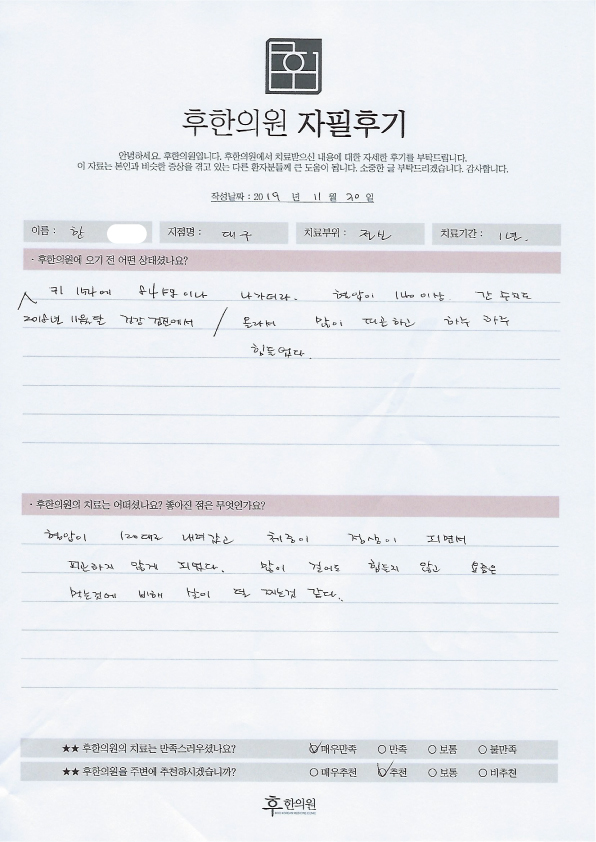 후한의원 자필후기
안녕하세요. 후한의원입니다. 후한의원에서 치료받으신 내용에 대한 자세한 후기를 부탁드립니다.
이 자료는 본인과 비슷한 증상을 겪고 있는 다른 환자분들께 큰 도움이 됩니다. 소중한 글 부탁드리겠습니다. 감사합니다.
작성날짜 : 2019 년 11 월 20 일
이름 : 한 지점명 : 대구 치료부위 : 전신 치료기간 : 1년.
· 후한의원에 오기 전 어떤 상태셨나요?
키 에 이나 나가더라. 혈압이 140 이상. 간 수치도
2018년 11월달 건강 검진에서 올라서 많이 피곤하고 하루 하루
힘들었다.
· 후한의원의 치료는 어떠셨나요? 좋아진 점은 무엇인가요?
혈압이 120대로 내려갔고 체중이 정상이 되면서
피곤하지 않게 되었다. 많이 걸어도 힘들지 않고 요즘은
먹는것에 비해 살이 덜 찌는것 같다.
★★ 후한의원의 치료는 만족스러우셨나요? 매우만족 만족 보통 불만족
★★ 후한의원을 주변에 추천하시겠습니까? 매우추천 추천 보통 비추천
후한의원